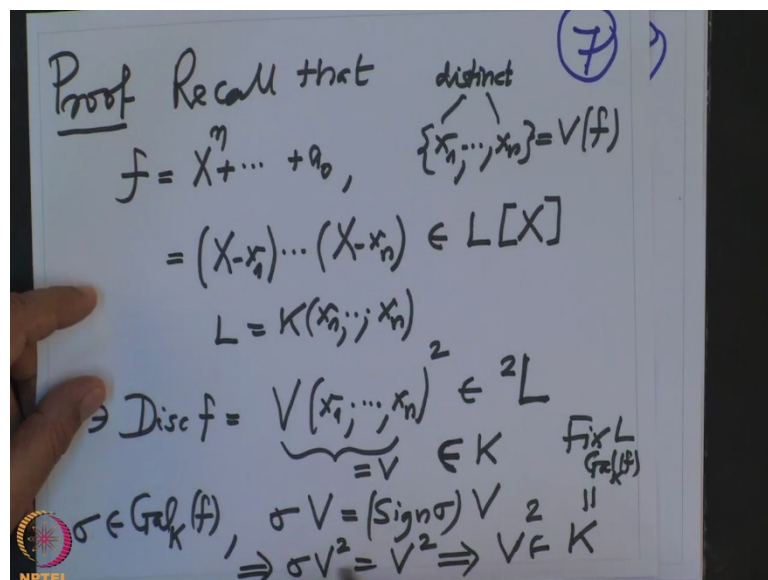 7
Proof Recall that distinct
f = Xⁿ + ⋯ + a₀, {x₁, ⋯, xₙ} = V(f)
= (X-x₁) ⋯ (X-xₙ) ∈ L[X]
L = K(x₁, ⋯, xₙ)
∋ Disc f = V(x₁, ⋯, xₙ)² ∈ ²L
= V ∈ K Fix L
Gal_K(f)
σ ∈ Gal_K(f), σV = (Sign σ) V ||
⇒ σV² = V² ⇒ V² ∈ K
NPTEL